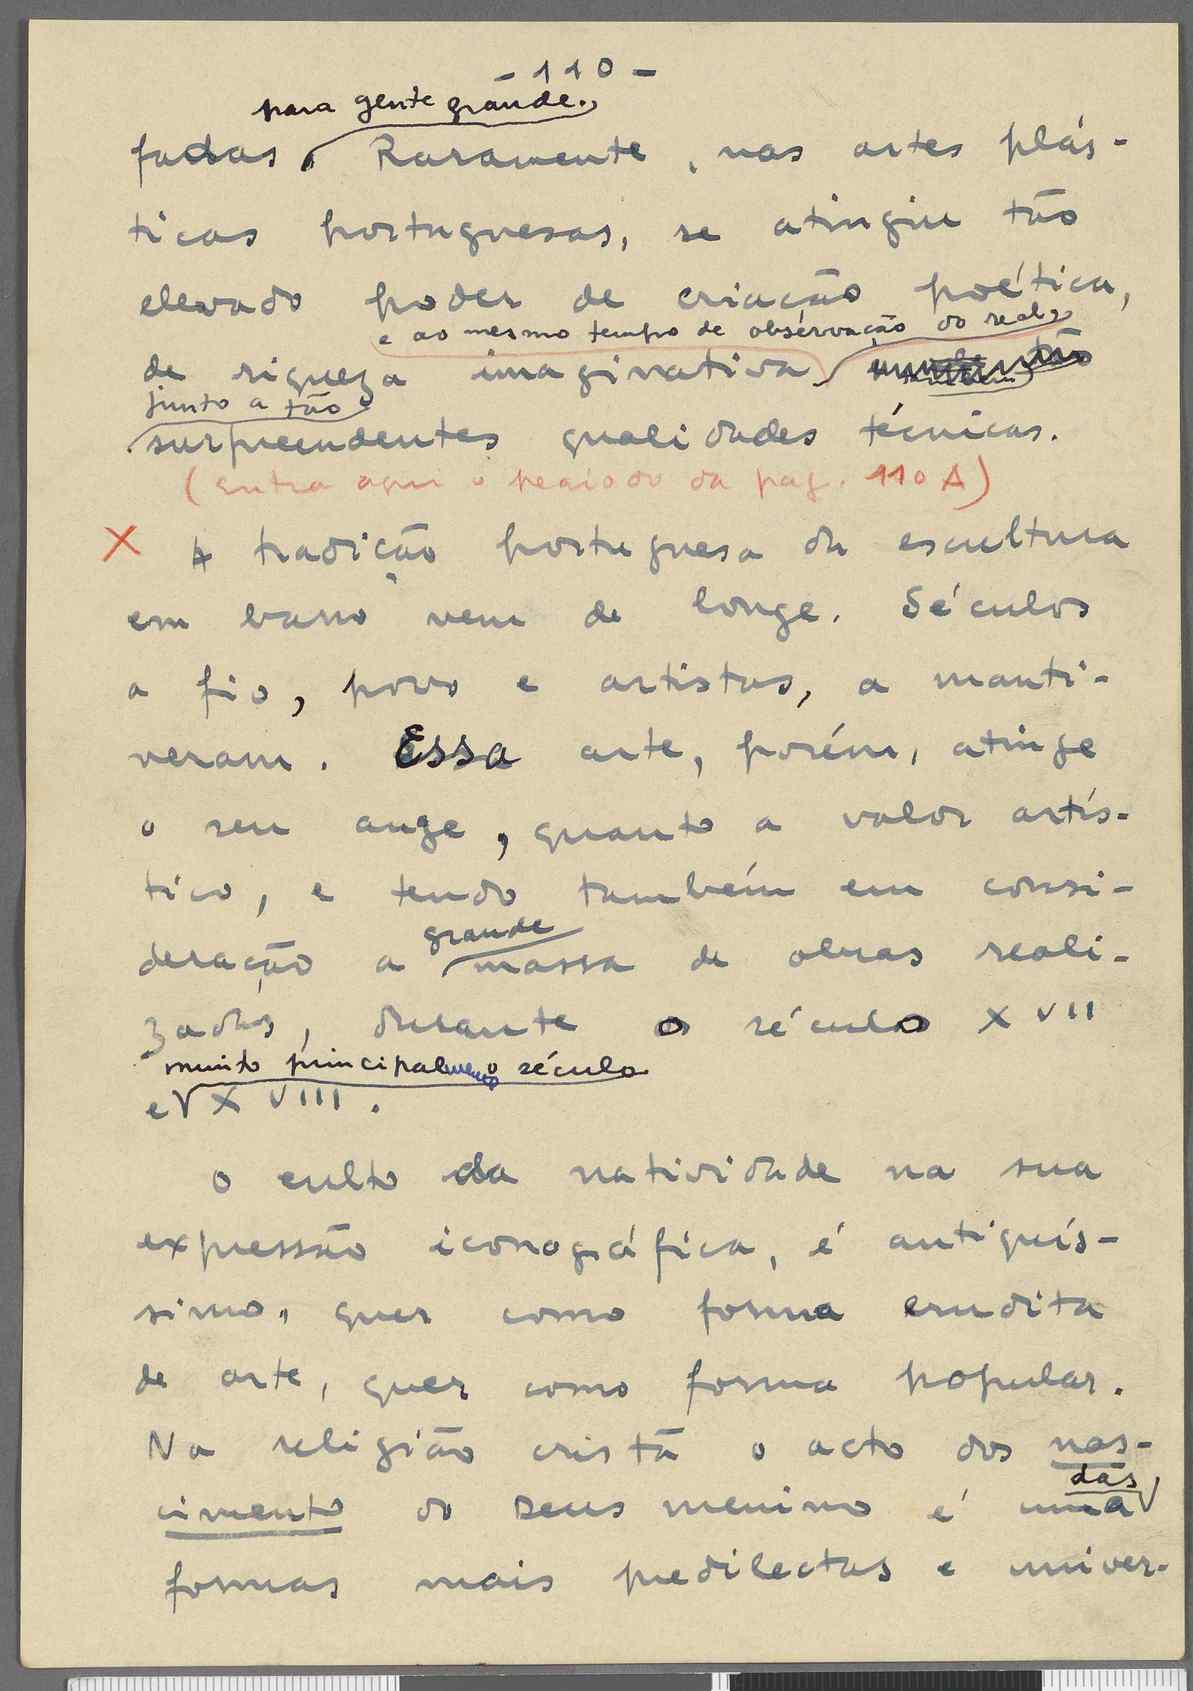 - 110 -
para gente grande.
fadas. Raramente, nas artes plás-
ticas portuguesas, se atingiu tão
elevado poder de criação poética,
e ao mesmo tempo de observação do real,
de riqueza imaginativa
junto a tão
surpreendentes qualidades técnicas.
(entra aqui o periodo da pag. 110 A)
X A tradição portuguesa da escultura
em barro vem de longe. Séculos
a fio, povo e artistas, a manti-
veram. Essa arte, porém, atinge
o seu auge, quanto a valor artís-
tico, e tendo também em consi-
grande
deração a massa de obras reali-
zadas, durante o século XVII
muito principalmente o século
e XVIII.
O culto da natividade na sua
expressão iconográfica, é antiquís-
simo, quer como forma erudita
de arte, quer como forma popular.
Na religião cristã o acto dos nas-
das
cimento do Deus menino é uma
formas mais predilectas e univer-